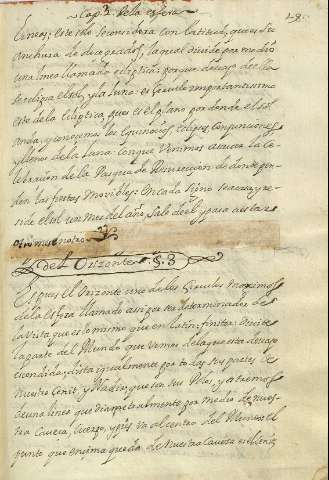 Cap.º 2. De la esfera
28.
lineos; este solo se considera con latitud, que es su
anchura de doze grados, la qual divide por medio
una linea llamada ecliptica: porque debaxo de ella
se eclipsa el sol, y la luna: es circulo importantissimo
este de la Ecliptica, que es el plano por donde el sol
anda, y conocemos los Equinocios, eclipses, Conjunciones
y llenos de la luna: con que venimos a sacar la Ce
lebracion de la Pasqua de Resurreccion de donde pen
den las fiestas movibles: en cada signo se ocupa y re
side el sol un mes del año, sale de el, y para a estar
otro mes en otro.
del Orizonte §. 3
Es pues el Orizonte uno de los Circulos maximos
de la Esfera llamado assi por ser determinador de
la vista que es lo mismo que en latin: finitor: divide
la parte del Mundo que vemos de la que esta debaxo
escondida; dista igualmente por todas sus partes de
nuestro Cenit, y Nadir, que son sus Polos, y extremos
de una linea que diametralmente por medio de nues
tra Caveza, cuerpo, y pies va al centro del Mundo: el
punto que encima queda de nuestra Caveza es el Cenit